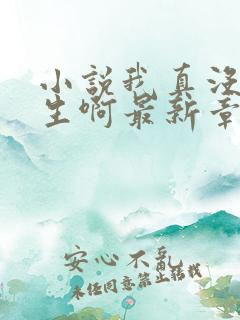 小說我真沒
生啊最新章
安心不亂
未经同意禁止转载